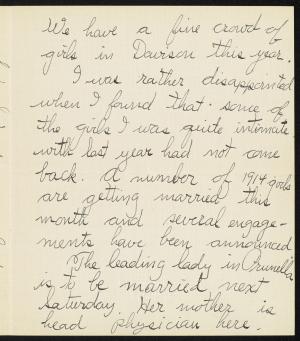 We have a fine crowd of
girls in Dawson this year.
I was rather disappointed
when I found that some of
the girls I was quite intimate
with last year had not come
back. A number of 1914 girls
are getting married this
month and several engage-
ments have been announced
The leading lady in Prunella
is to be married next
Saturday. Her mother is
head physician here.